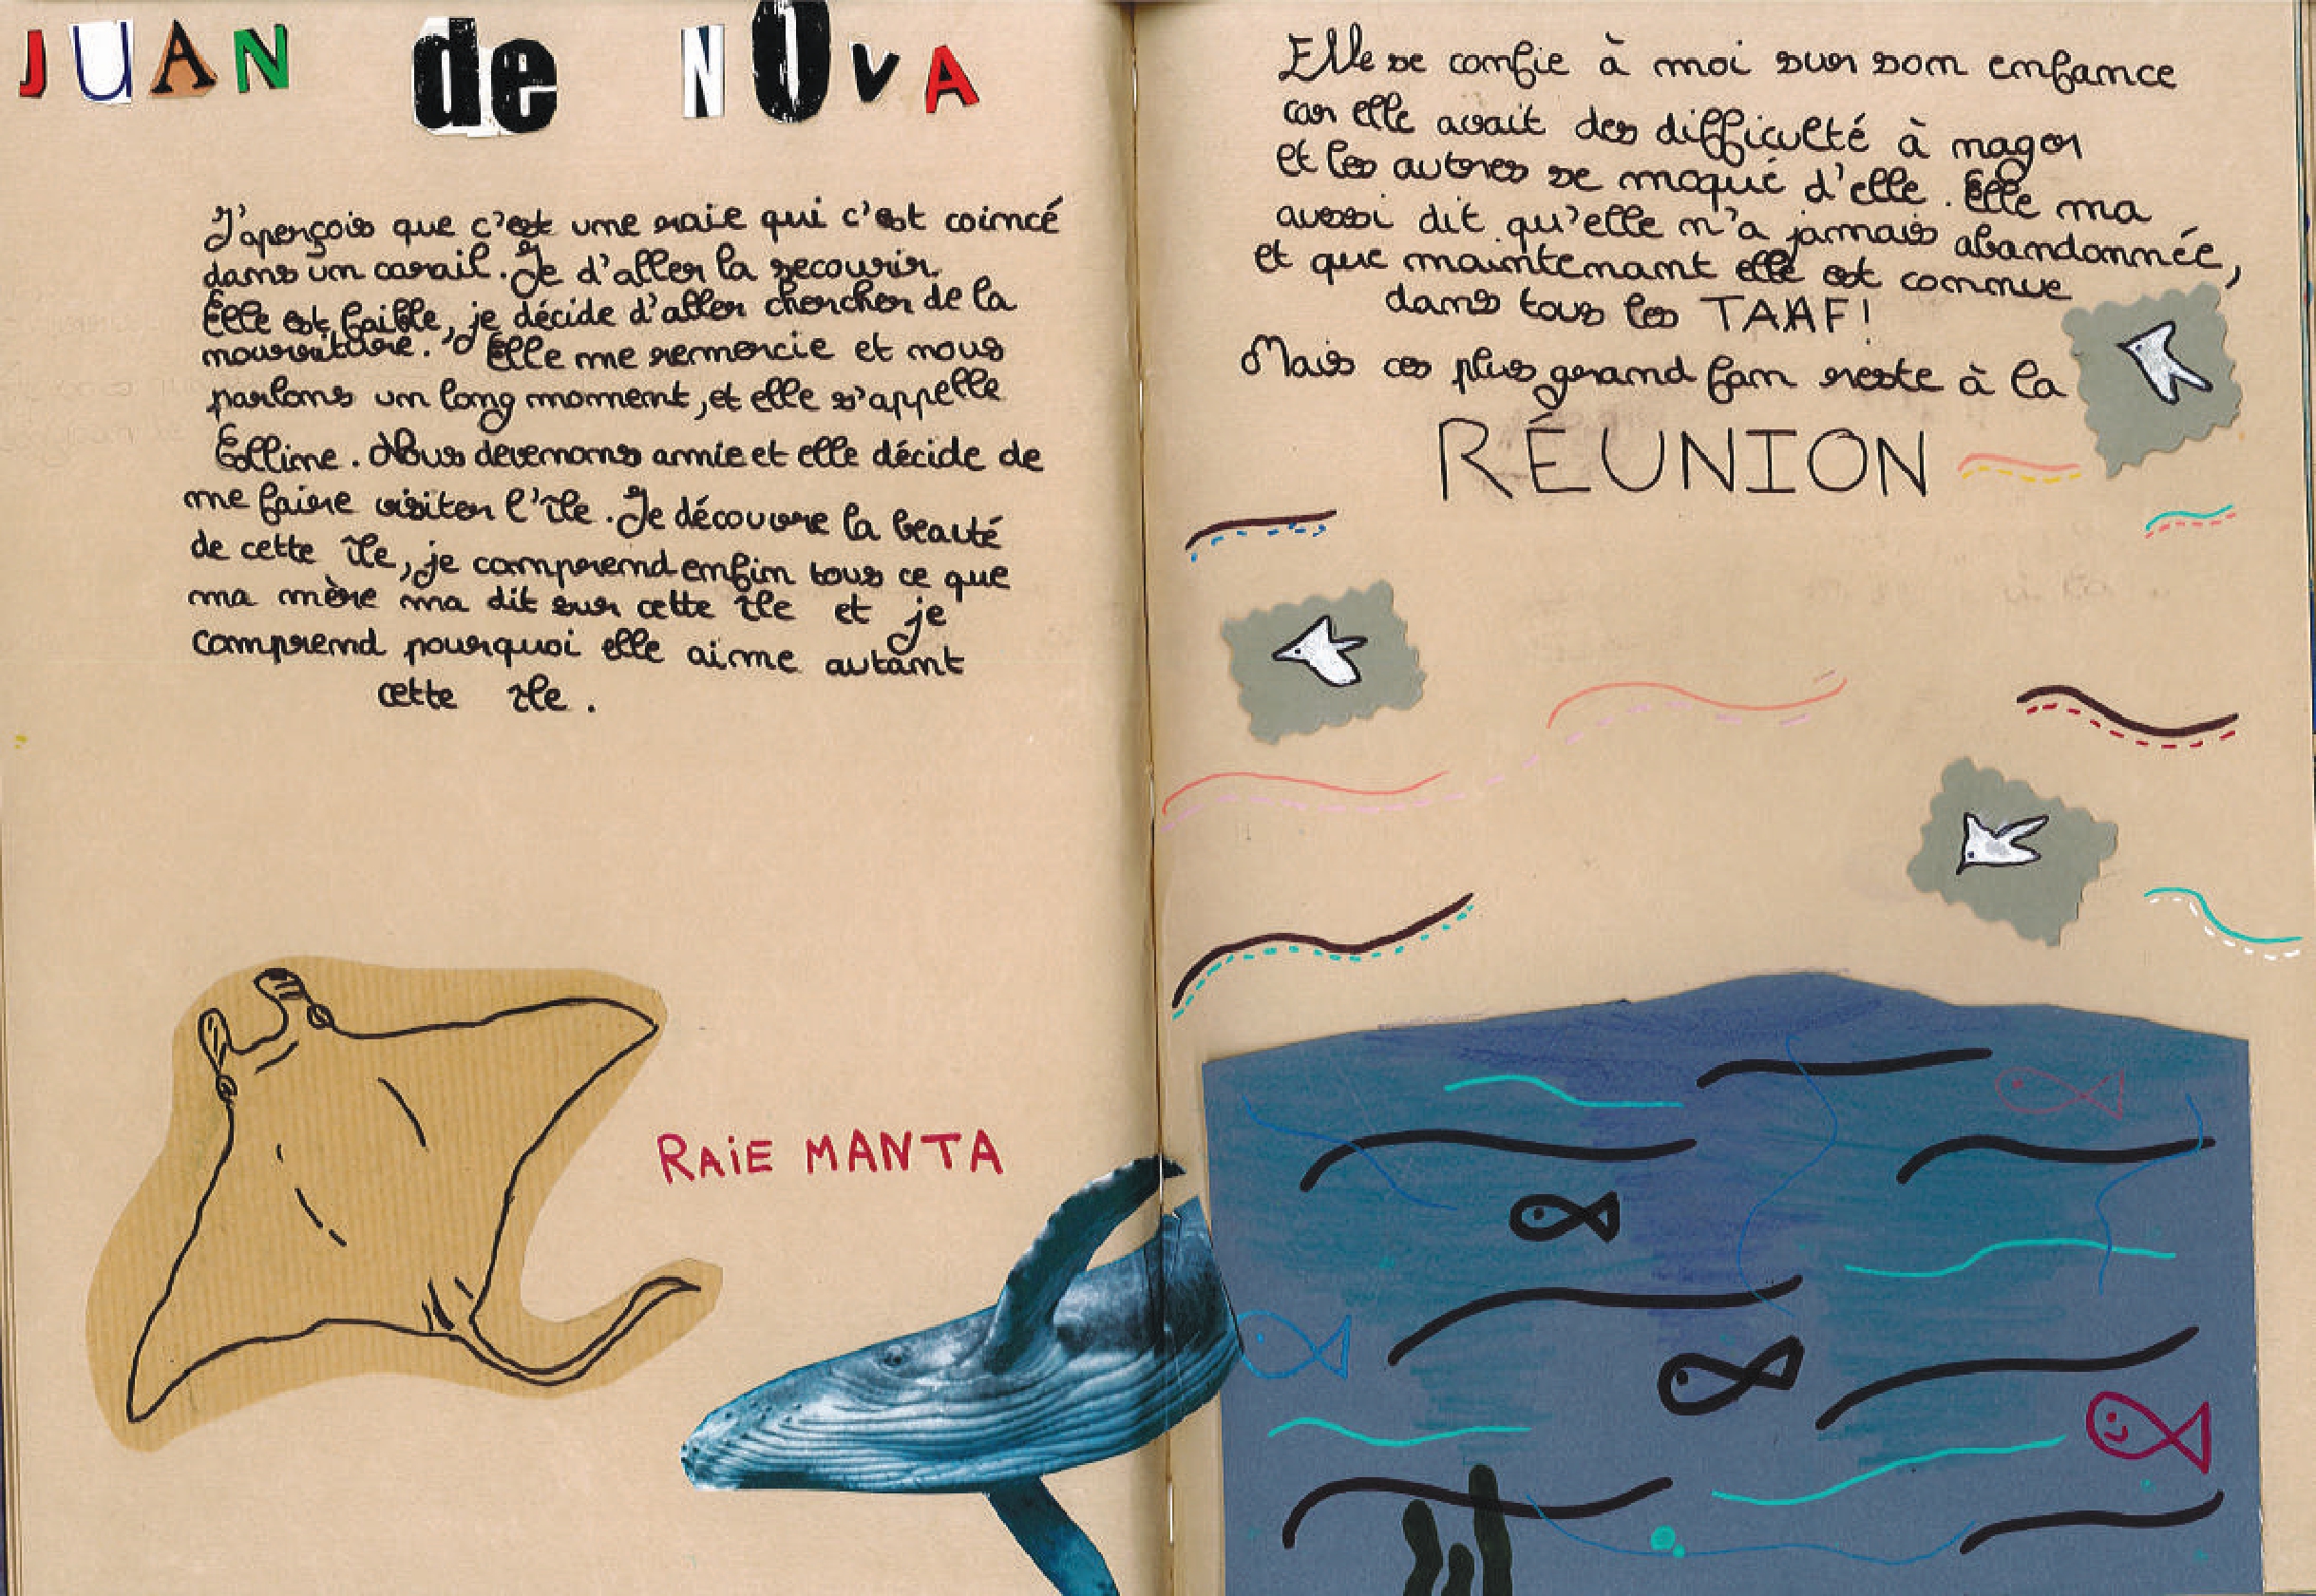 JUAN de NOVA
J'aperçois que c'est une raie qui c'est coincé
dans un corail. Je d'aller la secourir.
Elle est faible, je décide d'aller chercher de la
nourriture. Elle me remercie et nous
parlons un long moment, et elle s'appelle
Eolline. Nous devenons amie et elle décide de
me faire visiter l'île. Je découvre la beauté
de cette île, je comprend enfin tous ce que
ma mère ma dit sur cette île et je
comprend pourquoi elle aime autant
cette île.
RAiE MANTA
Elle se confie à moi sur son enfance
car elle avait des difficulté à nager
et les autres se moqué d'elle. Elle ma
aussi dit qu'elle n'a jamais abandonnée,
et que maintenant elle est connue
dans tous les TAAF!
Mais ces plus grand fan reste à la
RÉUNION